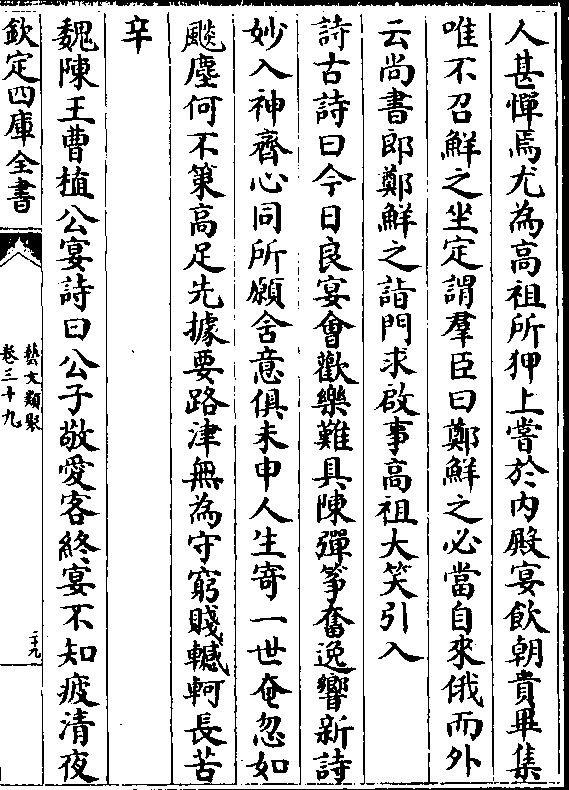 人甚憚焉尤為高祖所狎上嘗於内殿宴飲朝貴畢集
唯不召鮮之坐定謂羣臣曰鄭鮮之必當自來俄而外
云尚書郎鄭鮮之詣門求啟事高祖大笑引入
詩古詩曰今日良宴會歡樂難具陳彈筝奮逸響新詩
妙入神齊心同所願舍意俱未申人生寄一世奄忽如
飈塵何不策高足先據要路津無為守窮賤轗軻長苦
辛
魏陳王曹植公宴詩曰公子敬愛客終宴不知疲清夜
欽定四庫全書
藝文類聚
卷三十九
二十九